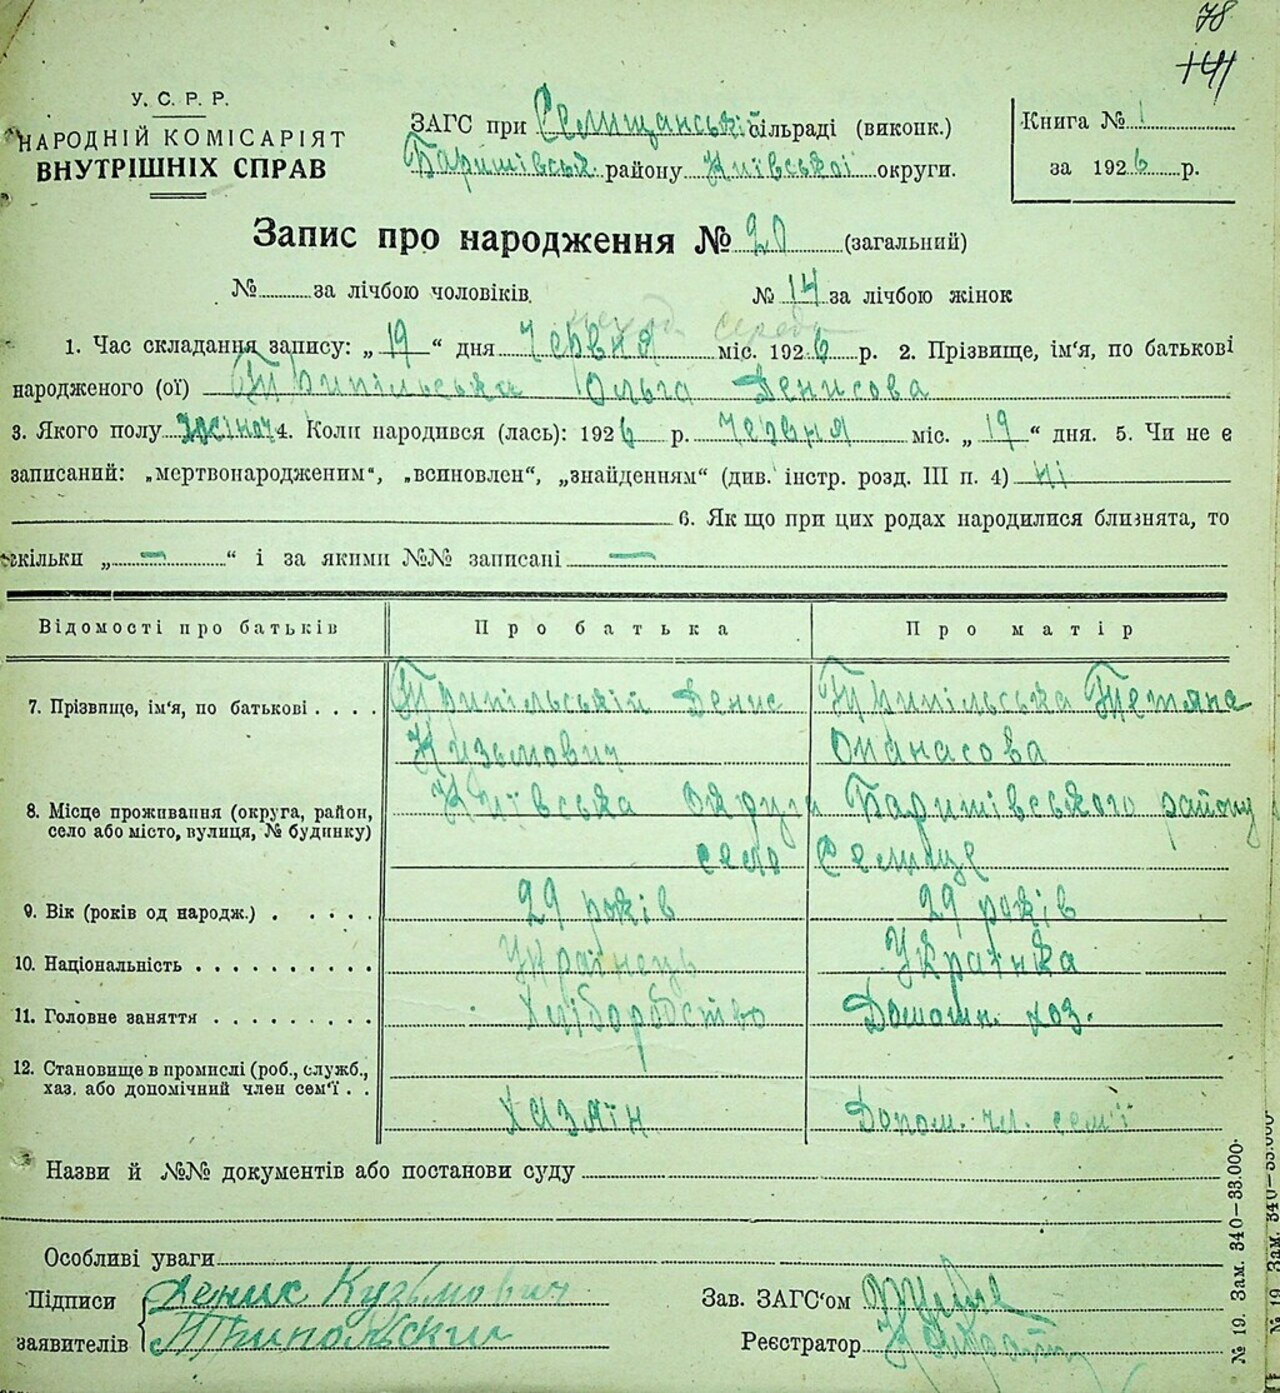 78
141
У. С. Р. Р.
НАРОДНІЙ КОМІСАРІЯТ
ВНУТРІШНІХ СПРАВ
ЗАГС при Селищанській сільраді (виконк.)
Баришівськ. району Київської округи.
Книга № 1
за 1926 р.
Запис про народження № 20 (загальний)
№ за лічбою чоловіків.
№ 14 за лічбою жінок
середн
1. Час складання запису: „ 19 “ дня Червня міс. 1926 р. 2. Прізвище, ім'я, по батькові
народженого (ої) Трипільська Ольга Денисова
3. Якого полу жіноч 4. Коли народився (лась): 1926 р. Червня міс. „ 19 “ дня. 5. Чи не є
записаний: „мертвонародженим“, „всиновлен“, „знайденням“ (див. інстр. розд. III п. 4) ні
6. Як що при цих родах народилися близнята, то
скільки „ — “ і за якими №№ записані —
Відомості про батьків Про батька Про матір
7. Прізвище, ім'я, по батькові . . . . Трипільській Денис Трипільська Тетяна
Кузьмович Опанасова
8. Місце проживання (округа, район, Київська Округа Баришівського району
село або місто, вулиця, № будинку)
село Селище
9. Вік (років од народж.) . . . . . 29 років 29 років
10. Національність . . . . . . . . . . Українець Українка
11. Головне заняття . . . . . . . . . Хліборобство Домашн. хоз.
12. Становище в промислі (роб., служб.,
хаз. або допомічний член сем'ї . .
Хазяїн Допом. чл. сем'ї
Назви й №№ документів або постанови суду
Особливі уваги
Підписи Денис Кузьмович
заявителів Трипольский
Зав. ЗАГС'ом
Реєстратор
№ 19. Зам. 340—33.000.
№ 19. Зам. 340—33.000